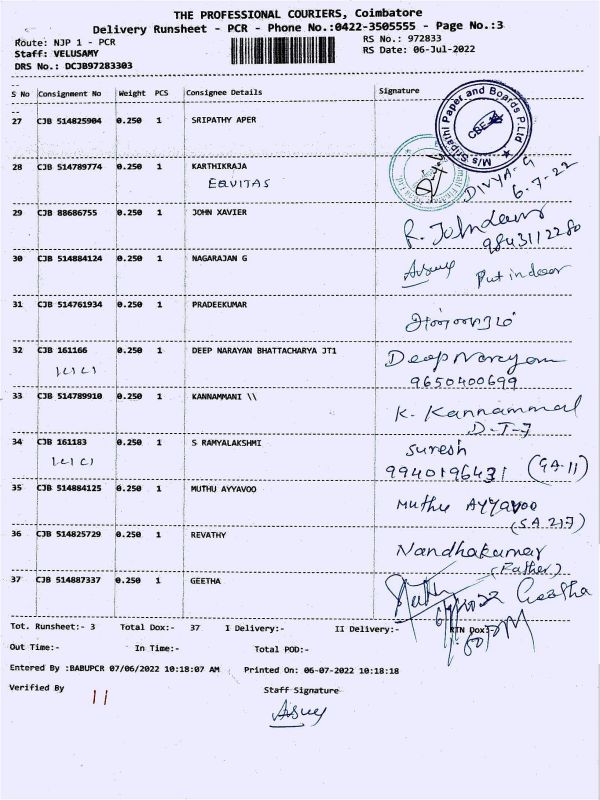 THE PROFESSIONAL COURIERS, Coimbatore
Delivery Runsheet - PCR - Phone No.:0422-3505555 - Page No.:3
Route: NJP 1 - PCR
RS No.: 972833
Staff: VELUSAMY
RS Date: 06-Jul-2022
DRS No.: DCJB97283303
S No Consignment No Weight PCS Consignee Details Signature
27 CJB 514825904 0.250 1 SRIPATHY APER
M/s. Sripathi Paper and Boards P.Ltd
CBE
28 CJB 514789774 0.250 1 KARTHIKRAJA
EQVITAS
DIVYA-G
6-7-22
29 CJB 88686755 0.250 1 JOHN XAVIER
9843112280
30 CJB 514884124 0.250 1 NAGARAJAN G
Put in door
31 CJB 514761934 0.250 1 PRADEEKUMAR
32 CJB 161166 0.250 1 DEEP NARAYAN BHATTACHARYA JT1
Deep Narayan
9650400699
33 CJB 514789910 0.250 1 KANNAMMANI \\
K. Kannammal
D-T-7
34 CJB 161183 0.250 1 S RAMYALAKSHMI
suresh
9940196431 (GA-11)
35 CJB 514884125 0.250 1 MUTHU AYYAVOO
Muthu AYYAVOO
(S.A 217)
36 CJB 514825729 0.250 1 REVATHY
Nandhakumar
(Father)
37 CJB 514887337 0.250 1 GEETHA
Geetha
Tot. Runsheet:- 3 Total Dox:- 37 I Delivery:- II Delivery:- RTN Dox:-
Out Time:- In Time:- Total POD:-
Entered By :BABUPCR 07/06/2022 10:18:07 AM Printed On: 06-07-2022 10:18:18
Verified By
Staff Signature